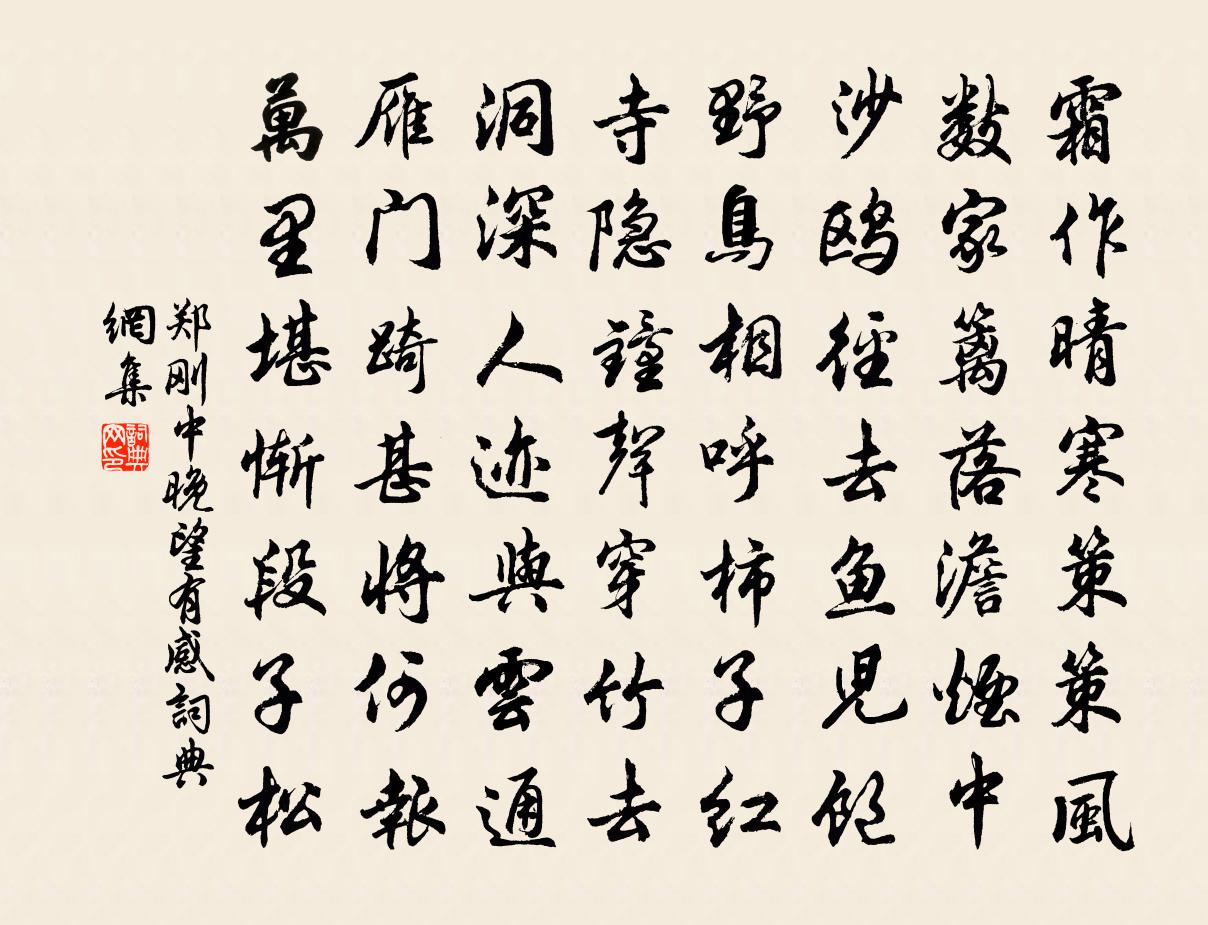 霜作晴寒策策風
數家籬落澹煙中
沙鸥徑去鱼児飽
野鳥相呼柿子紅
寺隐鐘聲穿竹去
洞深人迹與雲通
雁门踦甚將何報
萬里堪慚段子松
郑刚中晚望有感詞典
網集
詞典
网印